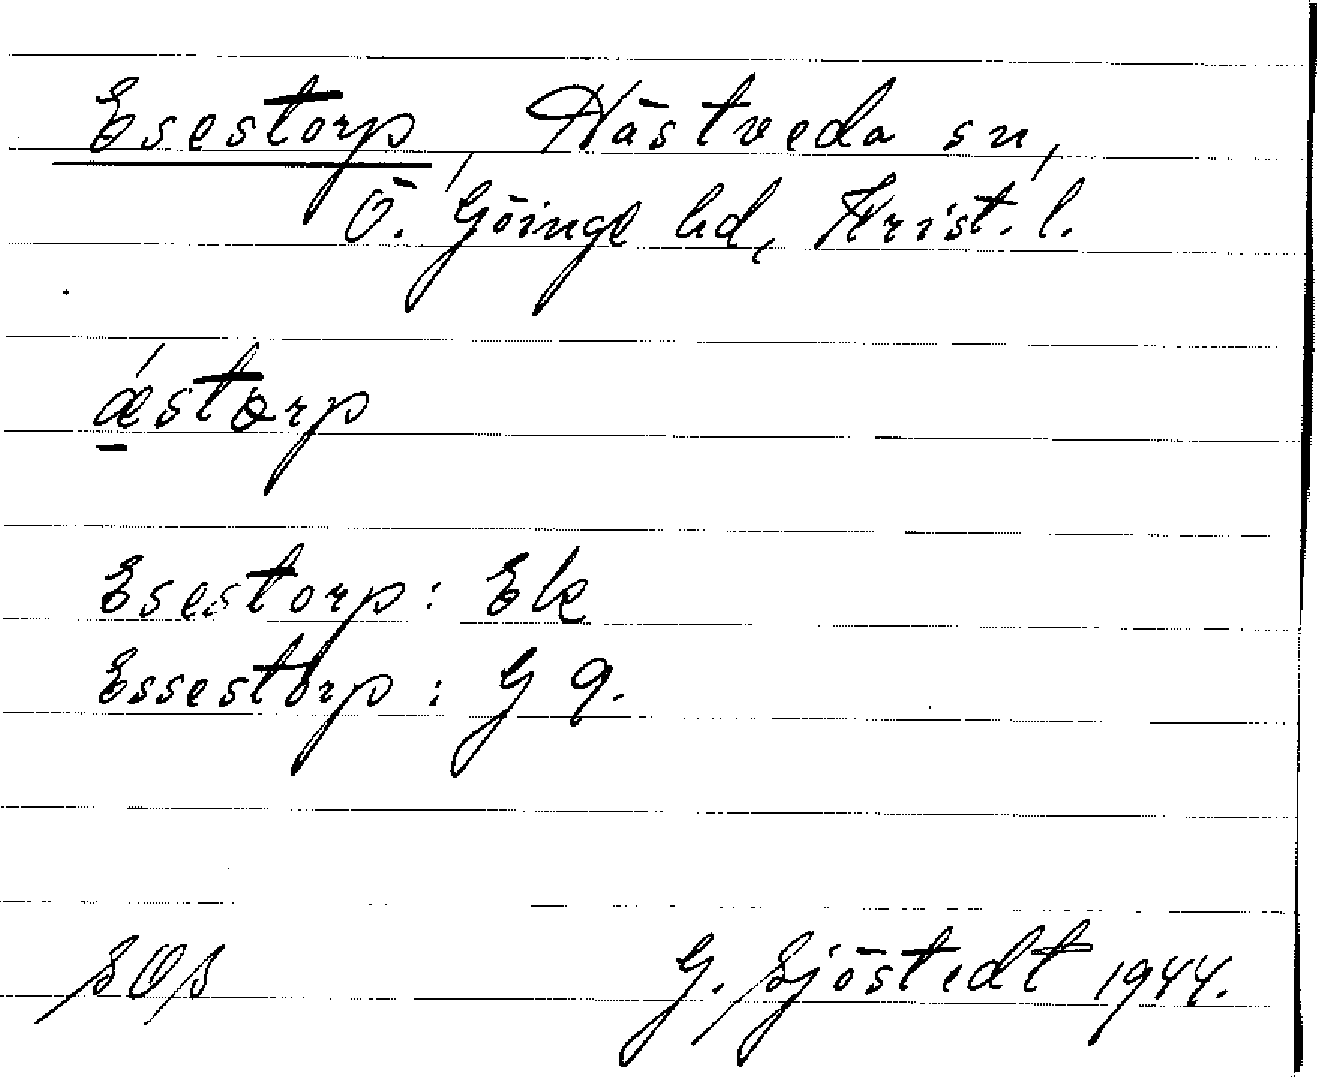 Esestorp, Hästveda sn,
Ö. Göinge hd, Krist. l.
ǽstorp
Esestorp: Ek
Essestorp: G 9.
SOS G. Sjöstedt 1944.